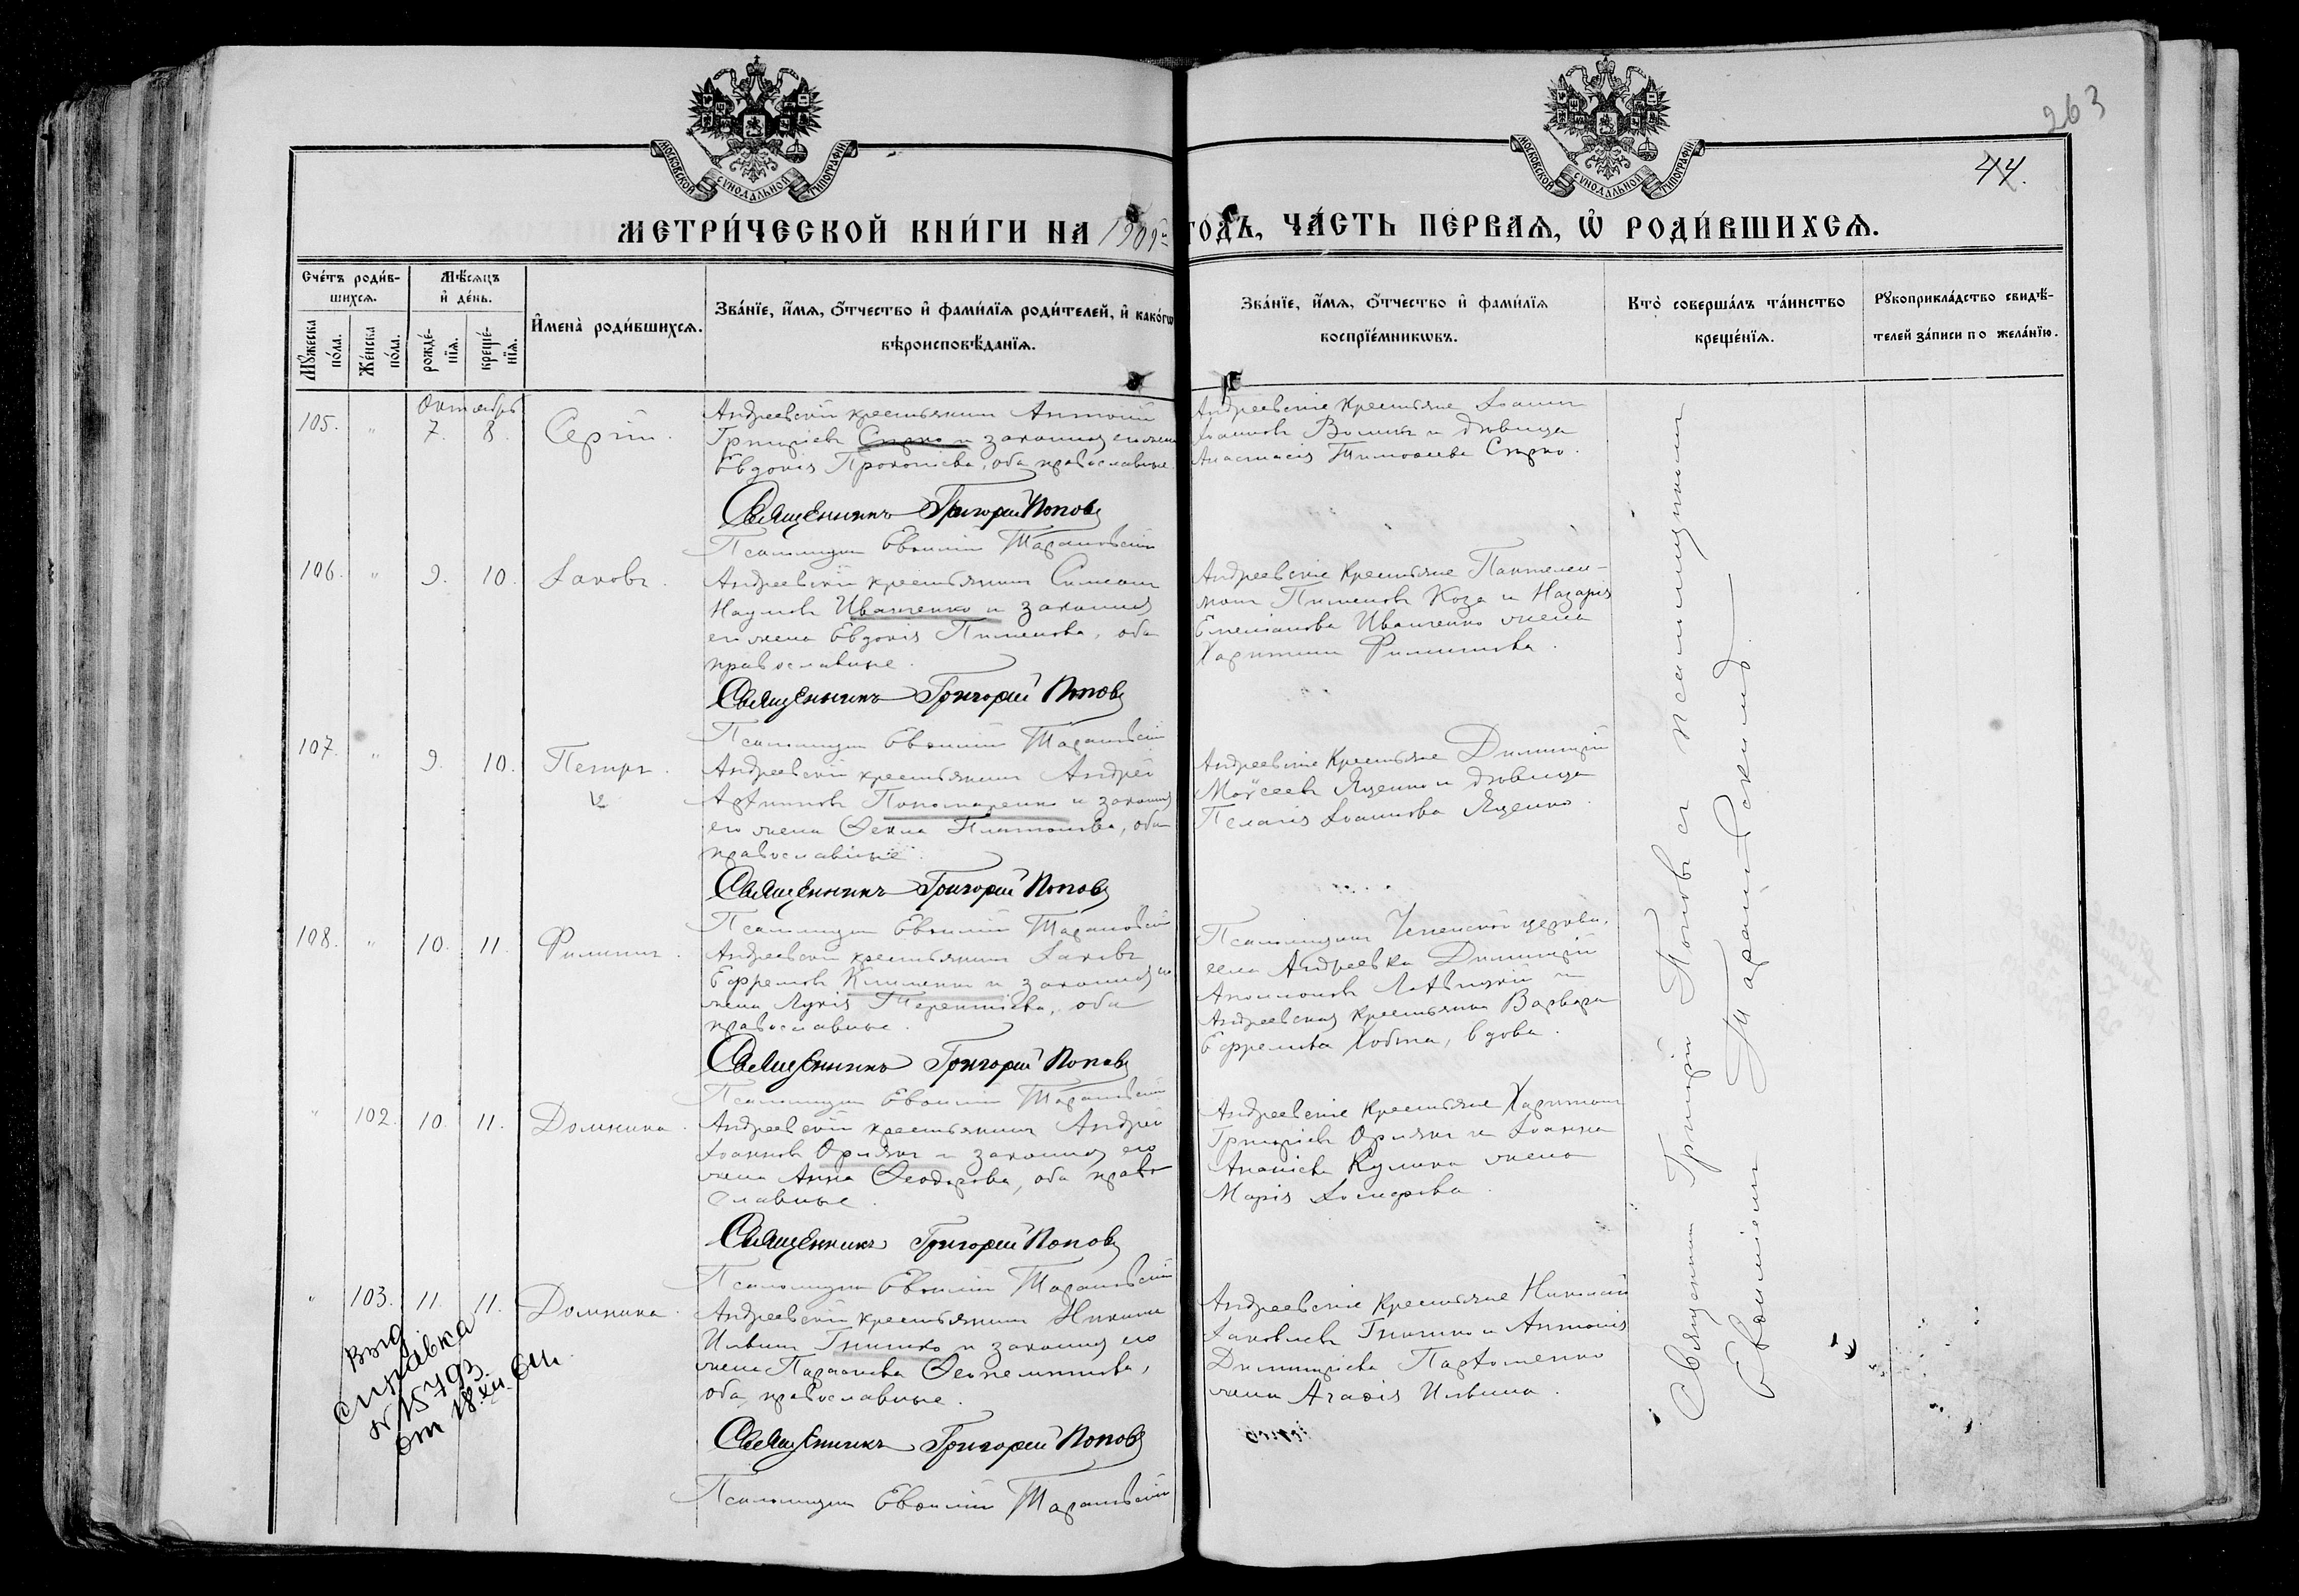 263
44.
МОСКОВСКОЙ СѴНОДАЛЬНОЙ ТИПОГРАФІИ
МОСКОВСКОЙ СѴНОДАЛЬНОЙ ТИПОГРАФІИ
МЕТРИ́ЧЕСКОЙ КНИ́ГИ НА 1909й ГОДЪ, ЧА́СТЬ ПЕ́РВАѦ, Ѡ҆ РОДИ́ВШИХСѦ.
Сче́тъ роди́в-
шихсѧ.
Мꙋ́жеска по́ла.
Же́нска по́ла.
Мѣ́сѧцъ
и҆ де́нь.
рожде́-
нїѧ.
креще́-
нїѧ.
И҆мена̀ роди́вшихсѧ.
Зва́нїе, и҆́мѧ, ѻ҆́тчество и҆ фами́лїѧ роди́телей, и҆ како́гѡ
вѣроисповѣ́данїѧ.
Зва́нїе, и҆́мѧ, ѻ҆́тчество и҆ фами́лїѧ
воспрїе́мникѡвъ.
Кто̀ соверша́лъ та́инство
креще́нїѧ.
Рꙋкоприкла́дство свидѣ́-
телей за́писи по жела́нїю.
Октябрь
105. " 7. 8. Сергій.
Андреевскій крестьянинъ Антоній
Григоріевъ Сирко и законная его жена
Евдокія Прокопіева, оба православные.
Священникъ Григорій Поповъ
Псаломщикъ Евѳимій Тарановскій
Андреевскіе крестьяне Іоаннъ
Іоанновъ и дѣвица
Анастасія Тимоѳеева Сирко.
106. " 9. 10. Іаковъ.
Андреевскій крестьянинъ Симеонъ
Наумовъ Иванченко и законная
его жена Евдокія Пименова, оба
православные.
Священникъ Григорій Поповъ
Псаломщикъ Евѳимій Тарановскій
Андреевскіе крестьяне Пантелеи-
монъ Пименовъ Коза и Назарія
Емеліанова Иванченко жена
Харитина Филиппова.
107. " 9. 10. Петръ.
Андреевскій крестьянинъ Андрей
Пономаренко и законная
его жена Ѳекла Платонова, оба
православные.
Священникъ Григорій Поповъ
Псаломщикъ Евѳимій Тарановскій
Андреевскіе крестьяне Димитрій
Моѵсеевъ Яценко и дѣвица
Пелагія Іоаннова Яценко.
108. " 10. 11. Филиппъ.
Андреевскій крестьянинъ Іаковъ
Ефремовъ Клименко и законная его
жена Лукія Терентіева, оба
православные.
Священникъ Григорій Поповъ
Псаломщикъ Евѳимій Тарановскій
Псаломщикъ Успенской церкви,
села Андреевки Димитрій
Аполлоновъ и
Андреевская крестьянка Варвара
Ефремова Хобта, вдова.
" 102. 10. 11. Домника.
Андреевскій крестьянинъ Андрей
Іоанновъ и законная его
жена Анна Ѳеодорова, оба право
славные.
Священникъ Григорій Поповъ
Псаломщикъ Евѳимій Тарановскій
Андреевскіе крестьяне Харитонъ
Григоріевъ и Іоанна
Ананіева Кулика жена
Марія
" 103. 11. 11. Домника.
Андреевскій крестьянинъ Никита
Ильинъ Гнитько и законная его
жена Параскева Ѳеопемптова,
оба православные.
Священникъ Григорій Поповъ
Псаломщикъ Евѳимій Тарановскій
Андреевскіе крестьяне Николай
Іаковлевъ Гнитько и Антонія
Димитріева Парѳоменко
жена Агаѳія Ильина.
Священникъ Григорій Поповъ съ псаломщикомъ
Евѳиміемъ Тарановскимъ
Выд
справка
№ 15793
от 18.XII.